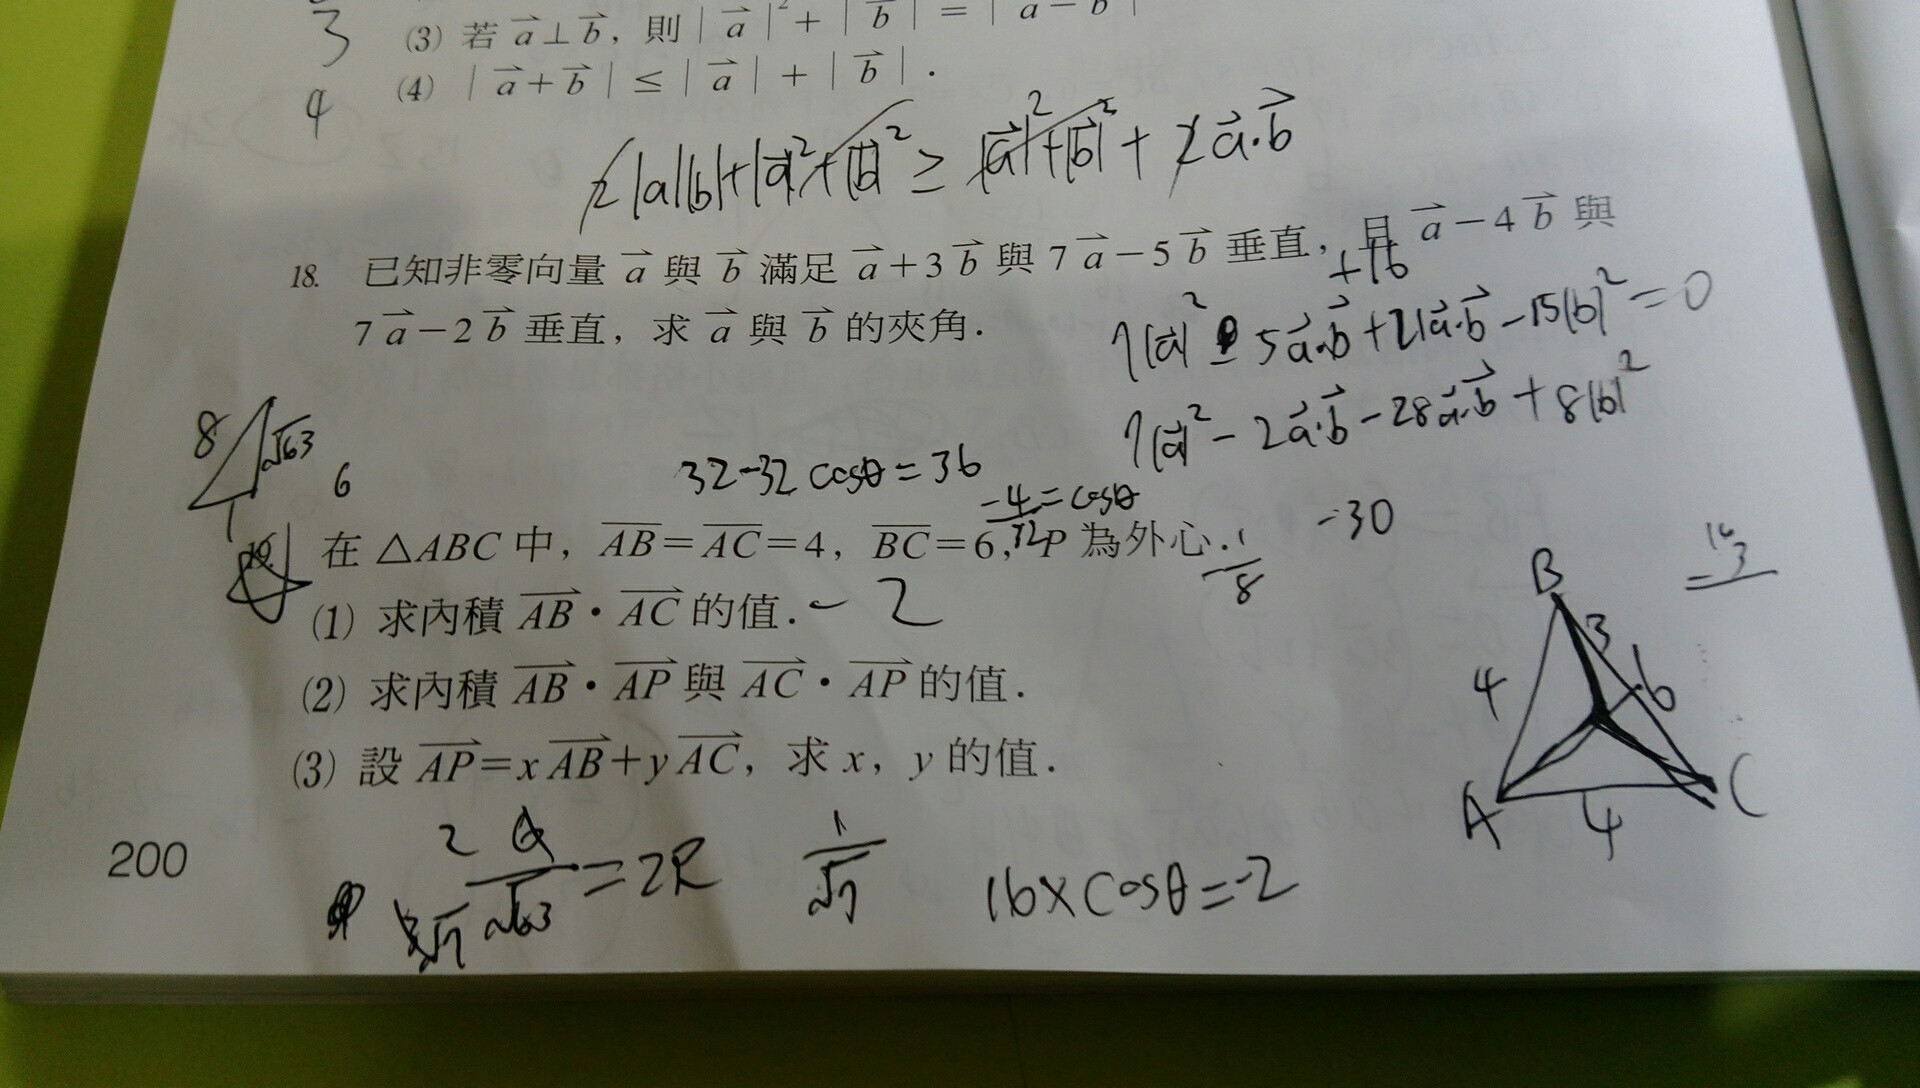 3
(3) 若 a⊥b, 則 | a |² + | b | = | a − b |
4
(4) | a + b | ≤ | a | + | b | .
2|a||b|+|a|²+|b|² ≥ |a|²+|b|² + 2 a·b
18. 已知非零向量 a 與 b 滿足 a+3 b 與 7 a−5 b 垂直, 且 a−4 b 與
+16
7 a−2 b 垂直, 求 a 與 b 的夾角.
7|a|² − 5a·b + 21a·b − 15|b|² = 0
7|a|² − 2a·b − 28a·b + 8|b|²
8 √63
1
6
32-32 cosθ = 36
-4/32 = cosθ
-30
19. 在 △ABC 中, AB=AC=4, BC=6, P 為外心.
-1/8
(1) 求內積 AB · AC 的值. -2
(2) 求內積 AB · AP 與 AC · AP 的值.
(3) 設 AP=x AB+y AC, 求 x, y 的值.
16
3
B
3
4
6
A
4
C
200
2
√63 = 2R
√7
1/√7
16×cosθ=-2